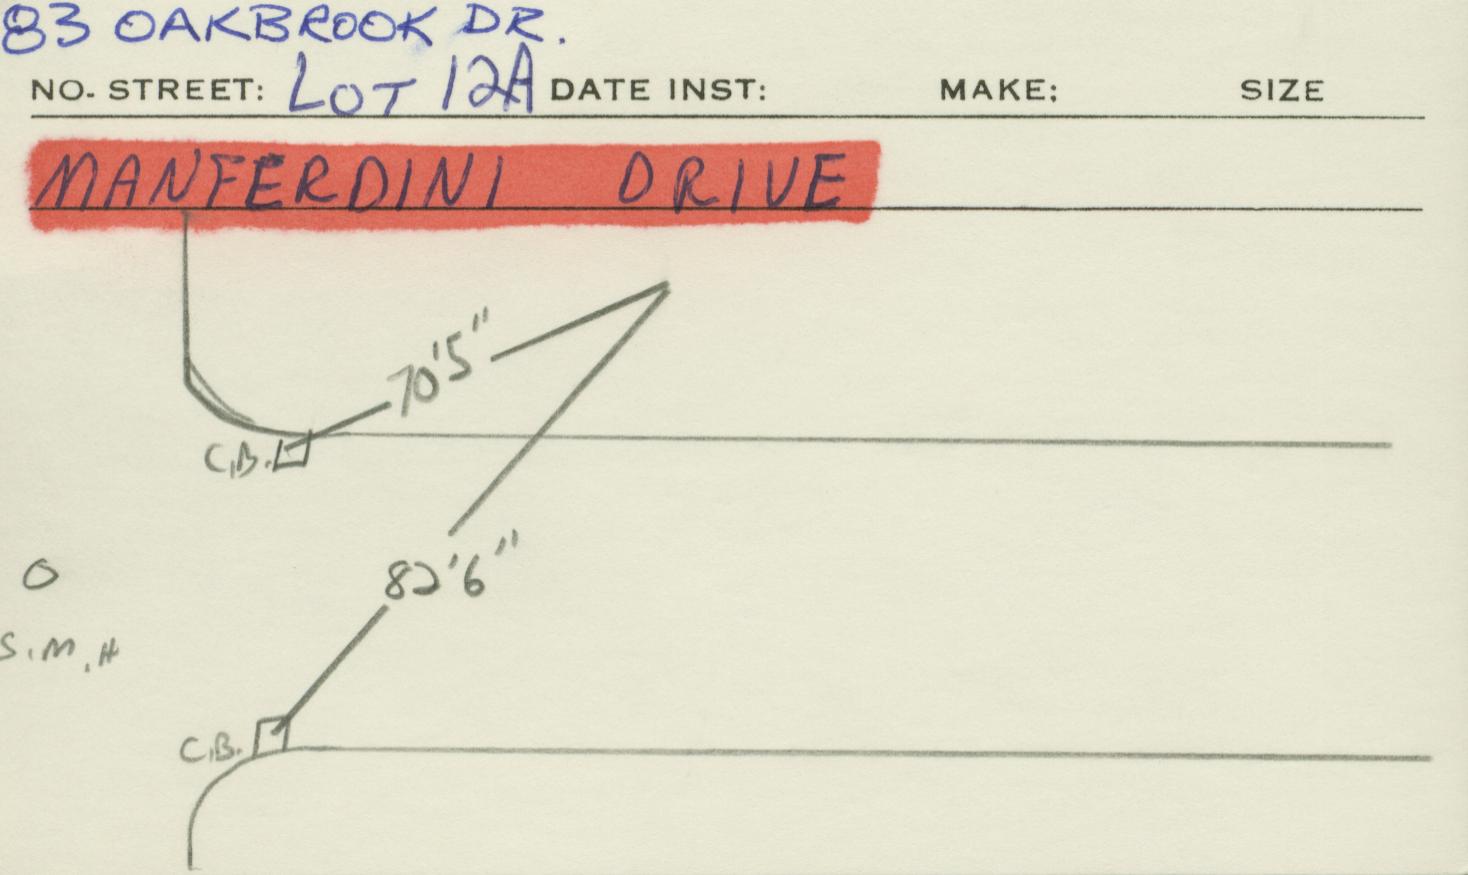 83 OAKBROOK DR.
NO. STREET: LOT 12A DATE INST: MAKE: SIZE
MANFERDINI DRIVE
70'5"
C.B.
82'6"
O
S.M.H
C.B.